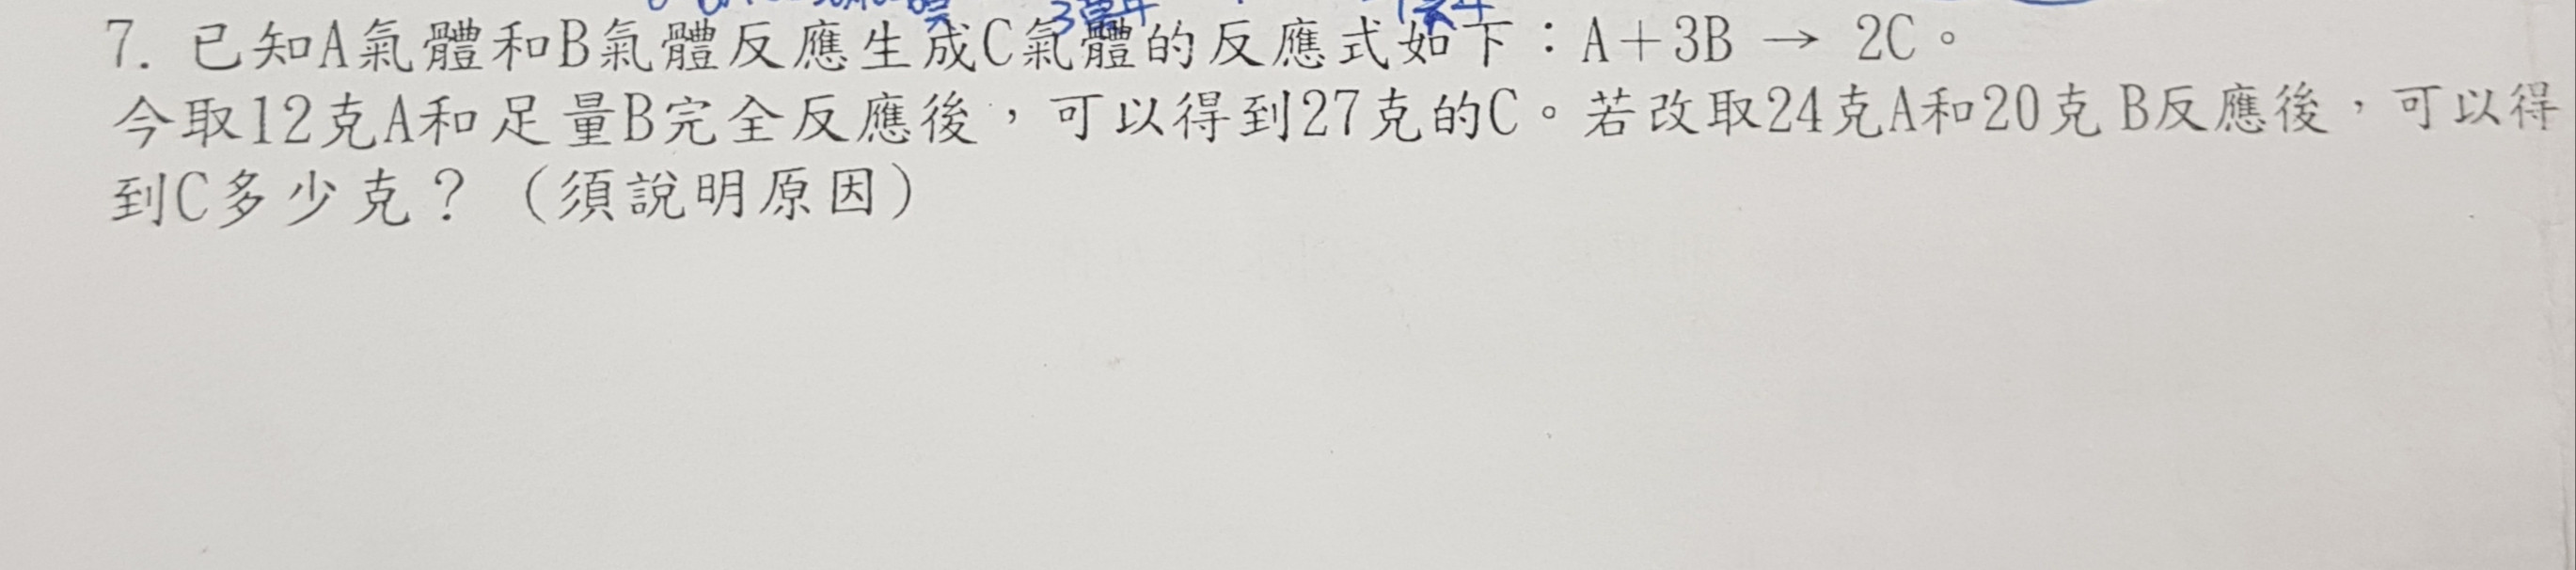 7. 已知A氣體和B氣體反應生成C氣體的反應式如下：A+3B → 2C。
今取12克A和足量B完全反應後，可以得到27克的C。若改取24克A和20克B反應後，可以得
到C多少克？（須說明原因）